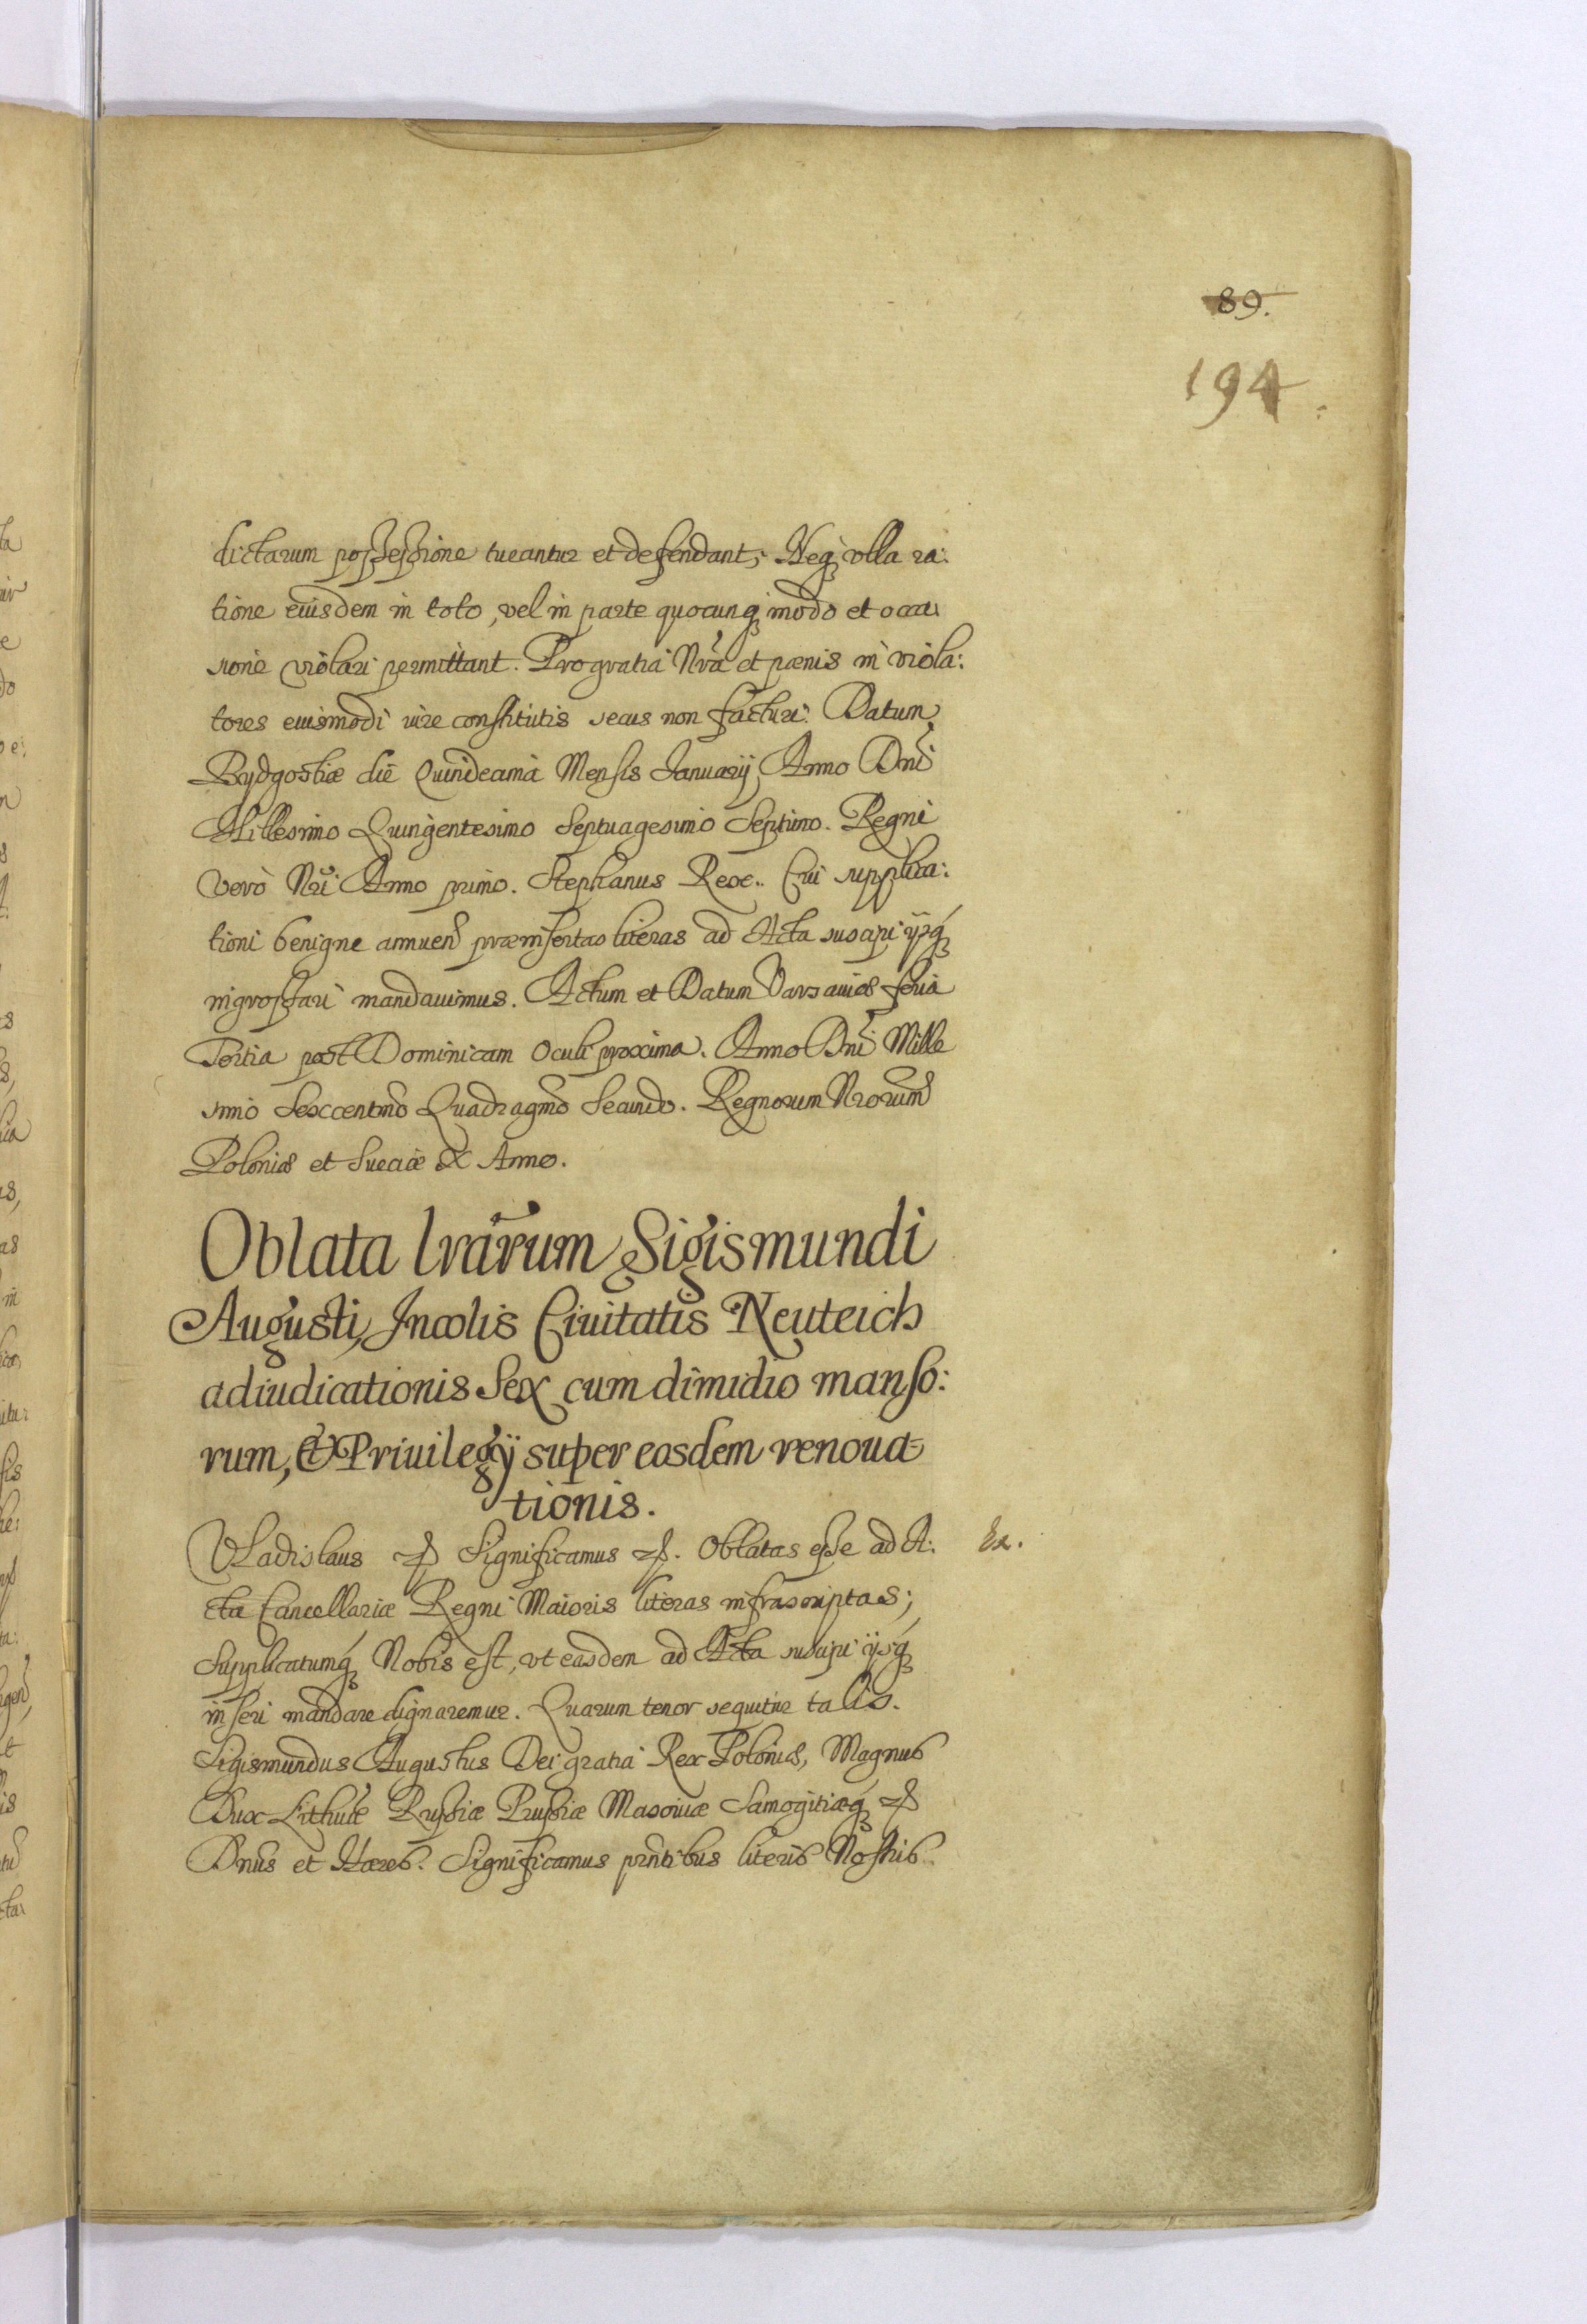 89.
194
dictarum possessione tueantur et defendant, Neq ulla ra:
tione eiusdem in toto, vel in parte quocunq modo et occa:
sione violari permittant. Pro gratia Nra et pænis in viola:
tores eiusmodi iure constitutis secus non facturi. Datum
Bydgostiæ die Quindecima Mensis Ianuarij Anno Dni
Millesimo Quingentesimo Septuagesimo Septimo. Regni
vero Nri Anno primo. Stephanus Rex. Cui supplica:
tioni benigne annuen præinsertas literas ad Acta suscipi ijsq
ingrossari mandauimus. Actum et Datum Varsauiæ feria
Tertia post Dominicam Oculi proxima. Anno Dni Mille
simo Sexcentmo Quadragmo Secundo. Regnorum Nrorum
Poloniæ et Sueciæ X Anno.
Oblata lrarum Sigismundi
Augusti, Incolis Ciuitatis Neuteich
adiudicationis Sex cum dimidio manso:
rum, & Priuilegij super easdem renoua
tionis.
Vladislaus Significamus Oblatas esse ad A:
Ex.
cta Cancellariæ Regni Maioris literas infrascriptas;
Supplicatumq Nobis est, vt easdem ad Acta suscipi ijsq
inseri mandare dignaremur. Quarum tenor sequitur talis.
Sigismundus Augustus Dei gratia Rex Poloniæ, Magnus
Dux Lithuæ Russiæ Prussiæ Masouiæ Samogitiæq
Dnus et Hæres. Significamus prntibus literis Nostris